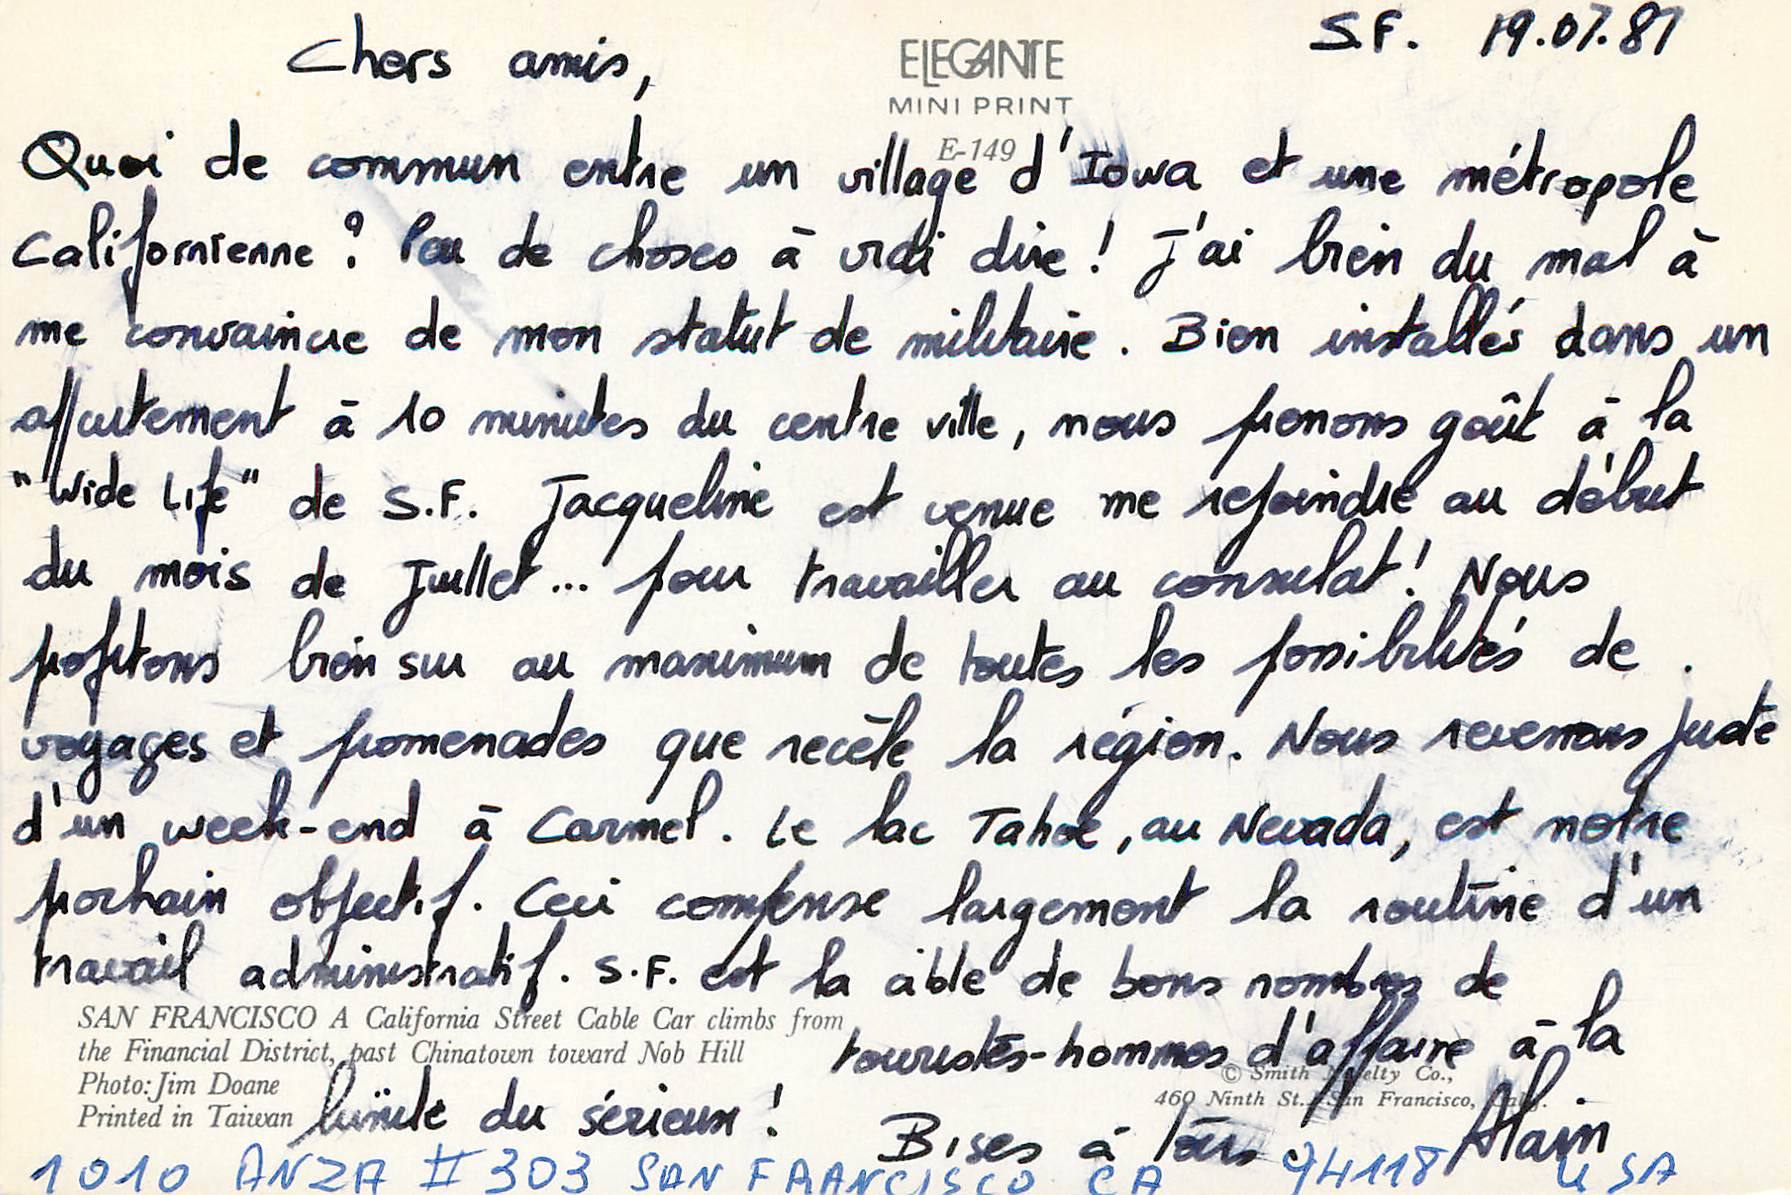 S.F. 19.07.87
Chers amis,
ELEGANTE
MINI PRINT
E-149
Quoi de commun entre un village d'Iowa et une métropole
Californienne ? Peu de choses à vrai dire ! J'ai bien du mal à
me convaincre de mon statut de militaire. Bien installés dans un
appartement à 10 minutes du centre ville, nous prenons goût à la
"Wide Life" de S.F. Jacqueline est venue me rejoindre au début
du mois de Juillet... pour travailler au consulat ! Nous
profitons bien sur au maximum de toutes les possibilités de
voyages et promenades que recèle la région. Nous revenons juste
d'un week-end à Carmel. Le lac Tahoe, au Nevada, est notre
prochain objectif. Ceci compense largement la routine d'un
travail administratif. S.F. est la cible de bons nombres de
touristes-hommes d'affaire à la
limite du sérieux !
SAN FRANCISCO A California Street Cable Car climbs from
the Financial District, past Chinatown toward Nob Hill
Photo: Jim Doane
Printed in Taiwan
© Smith Novelty Co.,
460 Ninth St., San Francisco, Calif.
Bises à tous. Alain
1010 ANZA # 303 SAN FRANCISCO CA 94118 USA